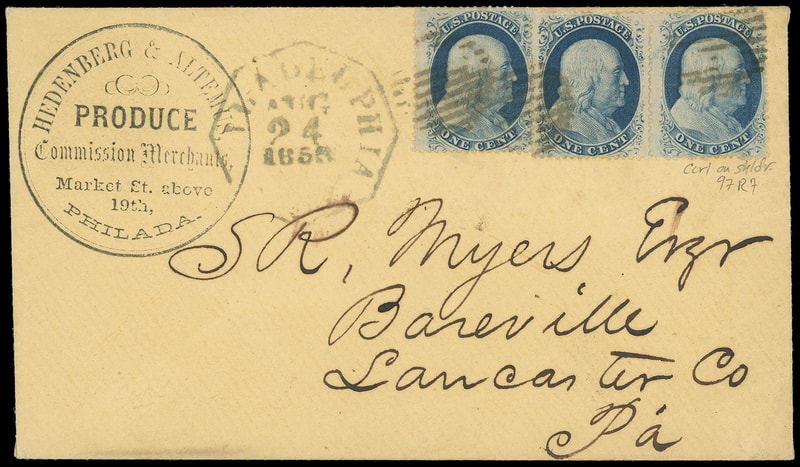 HEDENBERG & ALTEMUS
PRODUCE
Commission Merchants,
Market St. above
19th,
PHILADA.
PHILADELPHIA
AUG
24
U.S. POSTAGE
ONE CENT
U.S. POSTAGE
ONE CENT
U.S. POSTAGE
ONE CENT
Curl on shldr.
97R7
SR, Myers Esqr
Bareville
Lancaster Co
Pa